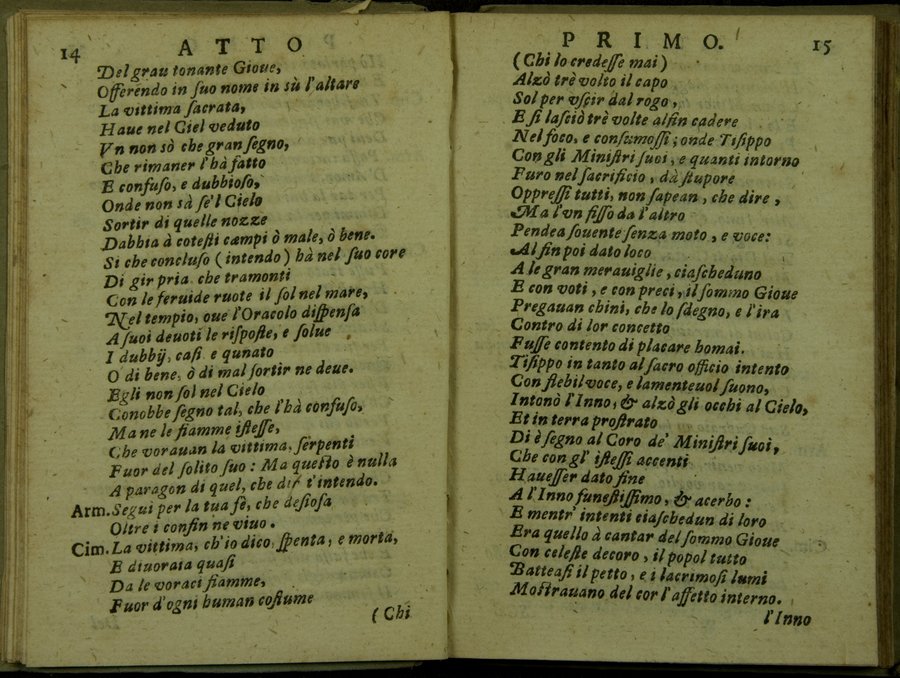 14 ATTO
Del grau tonante Gioue,
Offerendo in ſuo nome in sù l'altare
La vittima ſacrata,
Haue nel Ciel veduto
Vn non sò che gran ſegno,
Che rimaner l'hà fatto
E confuſo, e dubbioſo,
Onde non sà ſe'l Cielo
Sortir di quelle nozze
Dabbia à coteſti campi ò male, ò bene.
Si che concluſo (intendo) hà nel ſuo core
Di gir pria che tramonti
Con le feruide ruote il ſol nel mare,
Nel tempio, oue l'Oracolo diſpenſa
A ſuoi deuoti le riſpoſte, e ſolue
I dubbij, caſi e qunato
O di bene, ò di mal ſortir ne deue.
Egli non ſol nel Cielo
Conobbe ſegno tal, che l'hà confuſo,
Ma ne le fiamme iſteſſe,
Che vorauan la vittima, ſerpenti
Fuor del ſolito ſuo: Ma queſto è nulla
A paragon di quel, che dir t'intendo.
Arm. Segui per la tua fè, che deſioſa
Oltre i confin ne viuo.
Cim. La vittima, ch'io dico, ſpenta, e morta,
E diuorata quaſi
Da le voraci fiamme,
Fuor d'ogni human coſtume
(Chi
PRIMO. 15
(Chi lo credeſſe mai)
Alzò trè volto il capo
Sol per vſcir dal rogo,
E ſi laſciò trè volte alfin cadere
Nel foco, e conſumoſſi; onde Tiſippo
Con gli Miniſtri ſuoi, e quanti intorno
Furo nel ſacrificio, dà ſtupore
Oppreſſi tutti, non ſapean, che dire,
Ma l'vn fiſſo da l'altro
Pendea ſouente ſenza moto, e voce:
Al fin poi dato loco
A le gran merauiglie, ciaſcheduno
E con voti, e con preci, il ſommo Gioue
Pregauan chini, che lo ſdegno, e l'ira
Contro di lor concetto
Fuſſe contento di placare homai.
Tiſippo in tanto al ſacro officio intento
Con flebil voce, e lamenteuol ſuono,
Intonò l'Inno, & alzò gli occhi al Cielo,
Et in terra proſtrato
Di è ſegno al Coro de' Miniſtri ſuoi,
Che con gl' iſteſſi accenti
Haueſſer dato fine
A l'Inno funeſtiſſimo, & acerbo:
E mentr' intenti ciaſchedun di loro
Era quello à cantar del ſommo Gioue
Con celeſte decoro, il popol tutto
Batteaſi il petto, e i lacrimoſi lumi
Moſtrauano del cor l'affetto interno.
l'Inno